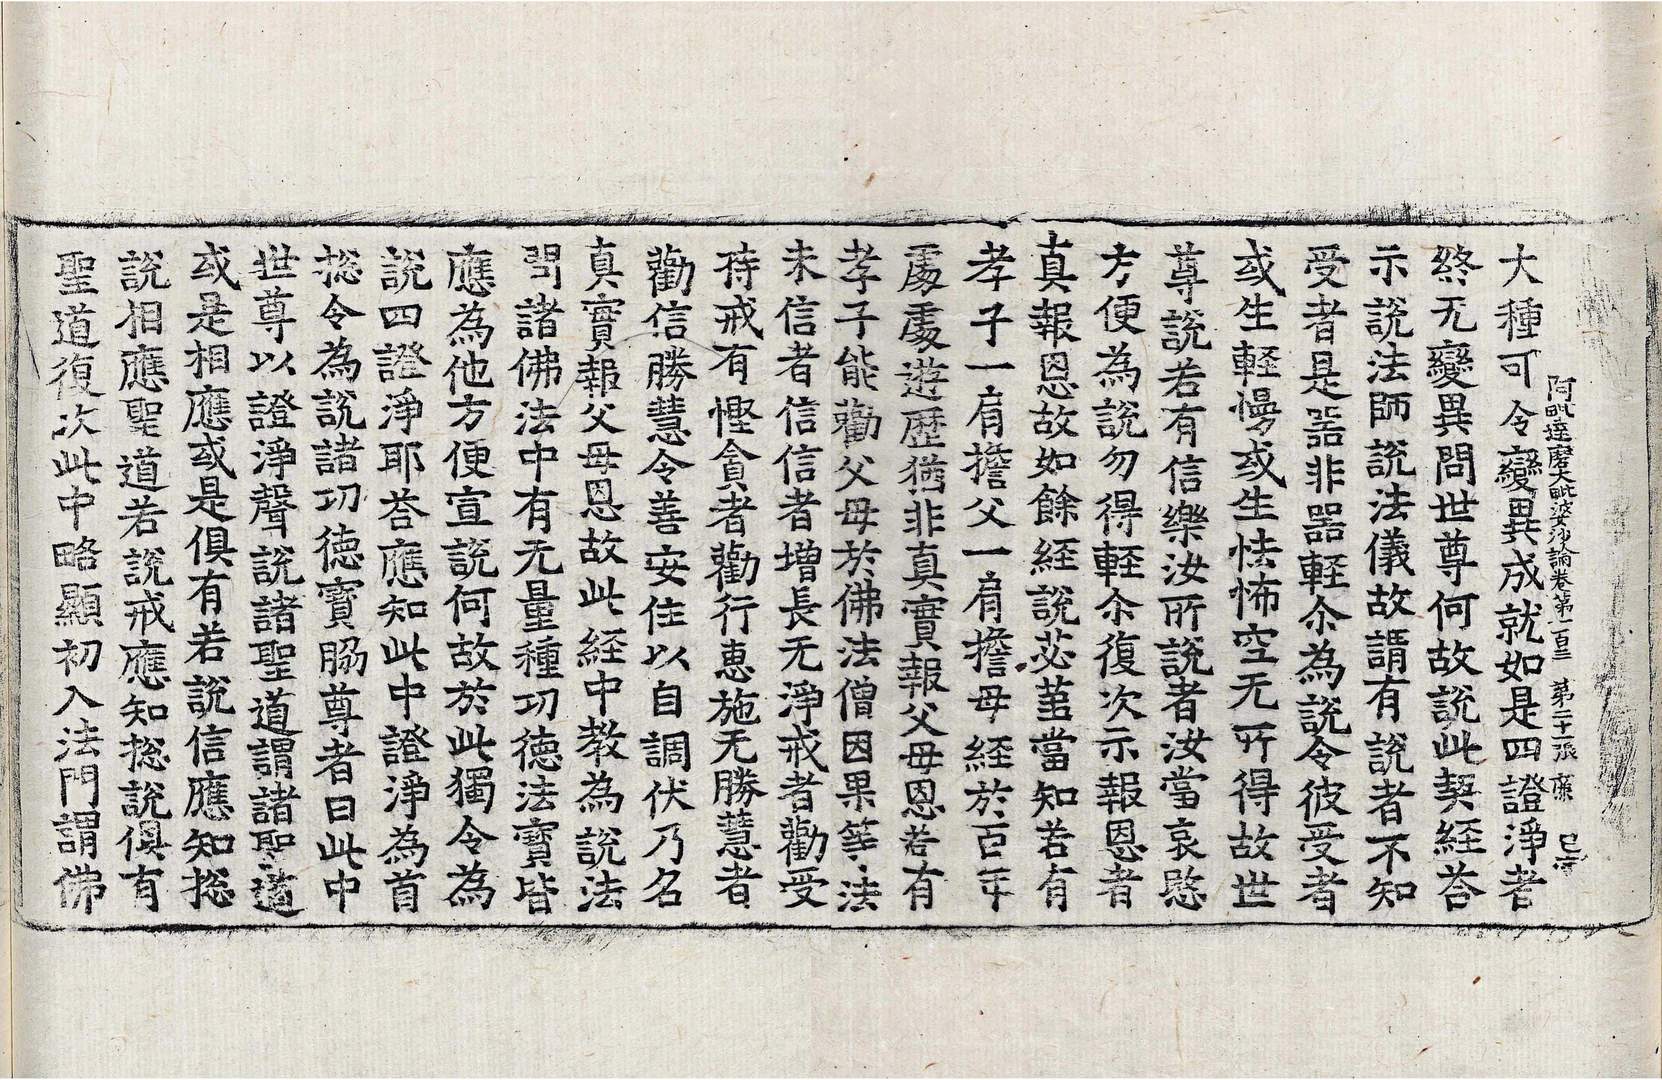 阿毗達磨大毗婆沙論卷第一百三 第二十一張 廉
大種可令變異成就如是四證淨者
終无變異問世尊何故說此契経荅
示說法師說法儀故謂有說者不知
受者是噐非噐軽尒為說令彼受者
或生軽慢或生怯怖空无所得故世
尊說若有信樂汝所說者汝當哀愍
方便為說勿得軽尒復次示報恩者
真報恩故如餘経說苾蒭當知若有
孝子一肩擔父一肩擔母経於百年
處處遊歷猶非真實報父母恩若有
孝子能勸父母於佛法僧因果等法
未信者信信者增長无淨戒者勸受
持戒有慳貪者勸行惠施无勝慧者
勸信勝慧令善安住以自調伏乃名
真實報父母恩故此経中教為說法
問諸佛法中有无量種功德法寶皆
應為他方便宣說何故於此獨令為
說四證淨耶荅應知此中證淨為首
捴令為說諸功德寶脇尊者曰此中
世尊以證淨聲說諸聖道謂諸聖道
或是相應或是俱有若說信應知捴
說相應聖道若說戒應知捴說俱有
聖道復次此中略顯初入法門謂佛